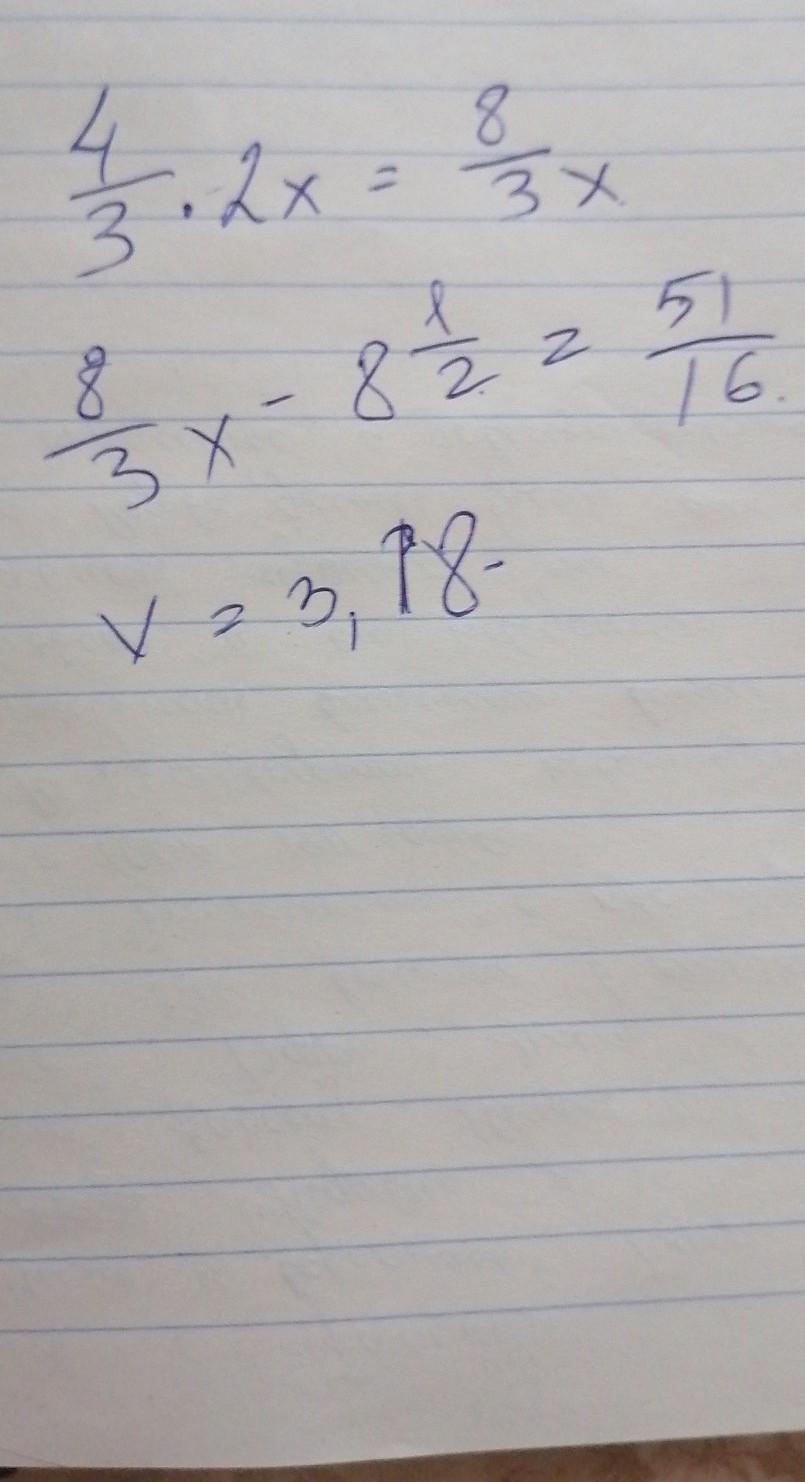 4/3 · 2x = 8/3 x
8/3 x - 8 1/2 = 51/16.
x = 3,18